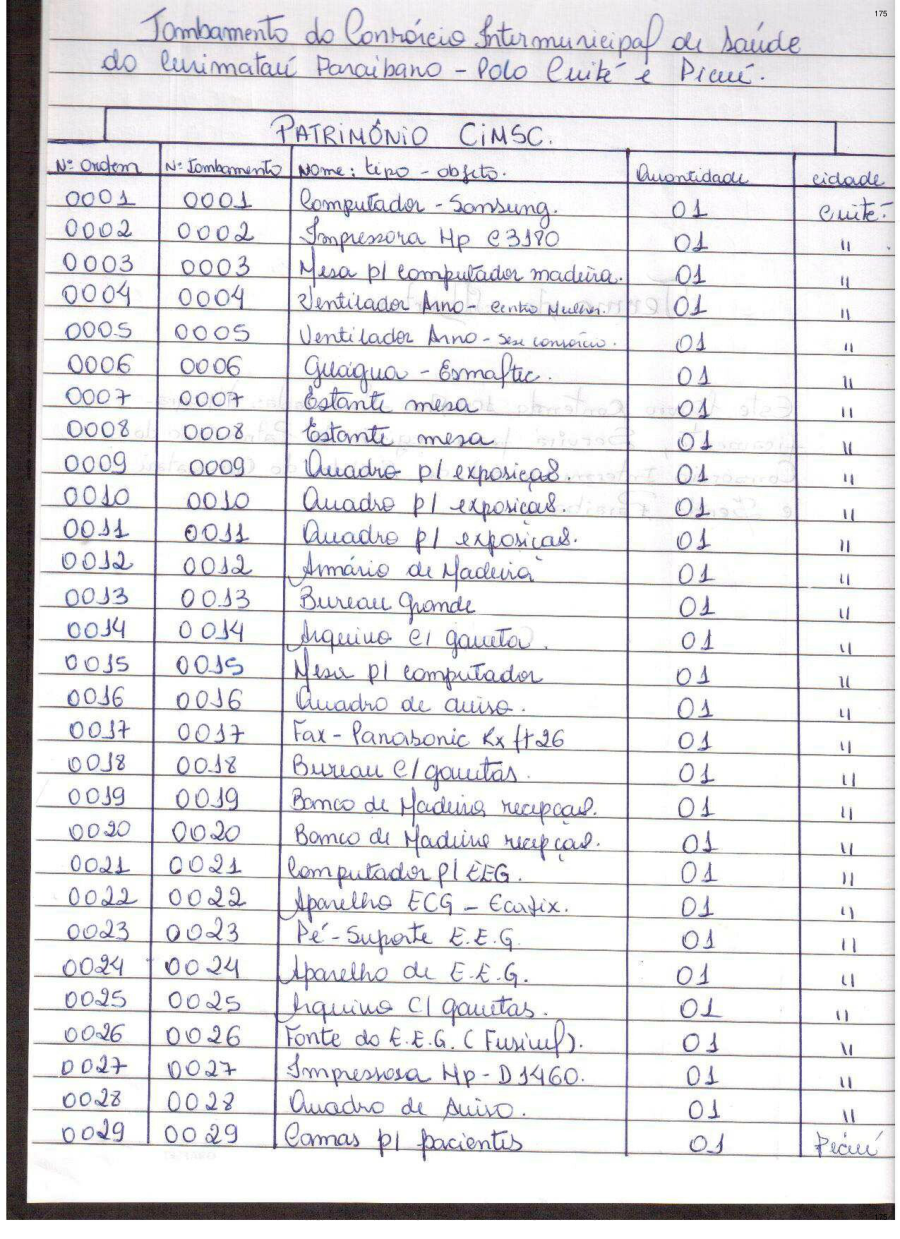 175
Tombamento do Consórcio Intermunicipal de Saúde
do Curimataú Paraibano - Polo Cuité e Picuí.
PATRIMÔNIO CiMSC.
Nº Ordem Nº Tombamento Nome: tipo - objeto. Quantidade cidade
0001 0001 Computador - Samsung. 01 Cuité.
0002 0002 Impressora Hp C3180 01 "
0003 0003 Mesa p/ computador madeira. 01 "
0004 0004 Ventilador Arno - Mulher. 01 "
0005 0005 Ventilador Arno - consórcio. 01 "
0006 0006 Guágua - Esmaltec. 01 "
0007 0007 Estante mesa 01 "
0008 0008 Estante mesa 01 "
0009 0009 Quadro p/ exposição. 01 "
0010 0010 Quadro p/ exposição. 01 "
0011 0011 Quadro p/ exposição. 01 "
0012 0012 Armário de Madeira 01 "
0013 0013 Bureau Grande 01 "
0014 0014 Arquivo c/ gaveta. 01 "
0015 0015 Mesa p/ computador 01 "
0016 0016 Quadro de aviso. 01 "
0017 0017 Fax - Panasonic Kx ft 26 01 "
0018 0018 Bureau c/ gavetas. 01 "
0019 0019 Banco de Madeira recepção. 01 "
0020 0020 Banco de Madeira recepção. 01 "
0021 0021 Computador p/ EEG. 01 "
0022 0022 Aparelho ECG - Ecafix. 01 "
0023 0023 Pé - Suporte E.E.G. 01 "
0024 0024 Aparelho de E.E.G. 01 "
0025 0025 Arquivo c/ gavetas. 01 "
0026 0026 Fonte do E.E.G. (Fusivel). 01 "
0027 0027 Impressosa Hp - D1460. 01 "
0028 0028 Quadro de Aviso. 01 "
0029 0029 Camas p/ pacientes 01 Picuí
175